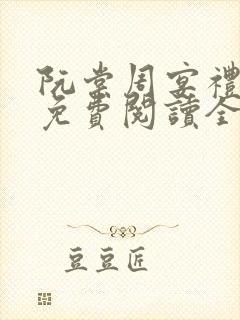 阮棠周宴禮
免費閱讀全
豆豆匠